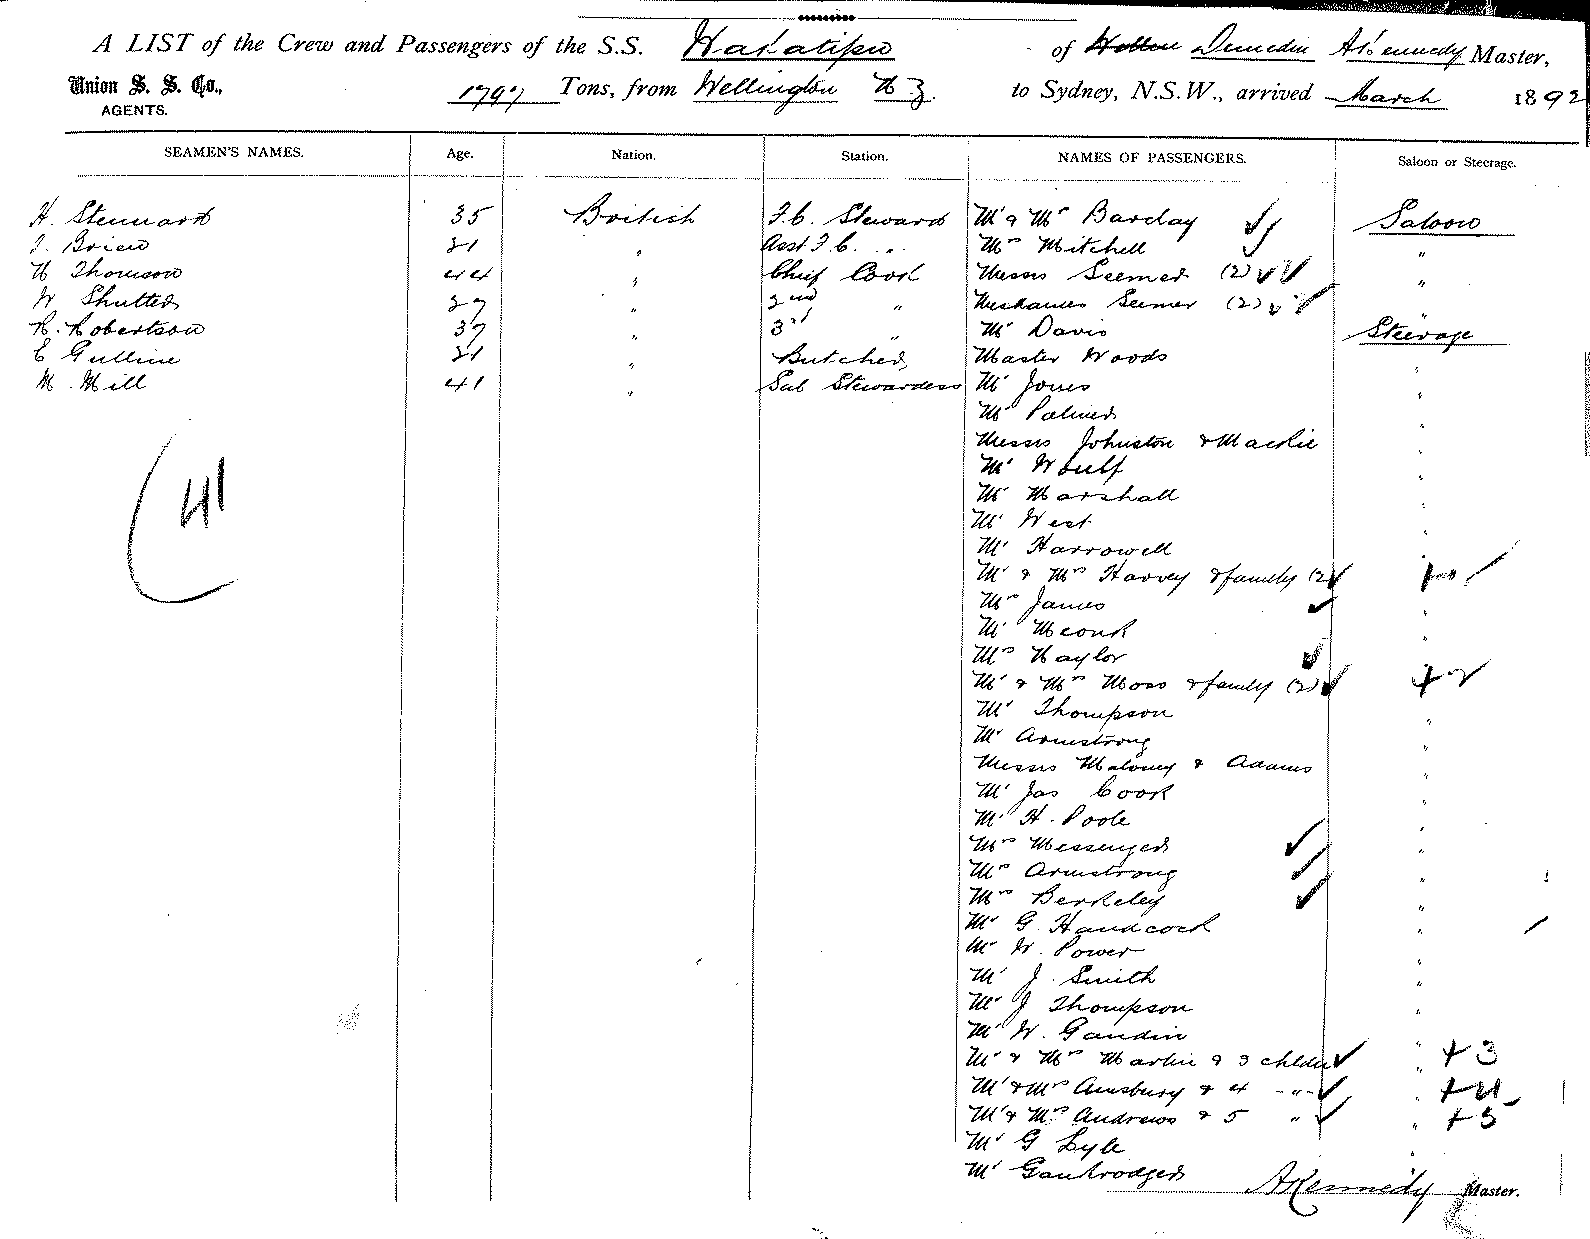 A LIST of the Crew and Passengers of the S.S. Wakatipu of Dunedin A Kennedy Master,
Union S. S. Co., AGENTS. 1797 Tons, from Wellington N Z. to Sydney, N.S.W., arrived March 1892
SEAMEN'S NAMES. Age. Nation. Station. NAMES OF PASSENGERS. Saloon or Steerage.
H. Stennard 35 British F.C. Steward Mr & Mrs Barclay Saloon
J. Brien 21 " Asst F.C. " Mrs Mitchell "
Thomson 44 " Chief Cook Messrs Seemer (2) "
W Shutter 27 " 2nd " Mesdames Seemer (2) "
R. Robertson 37 " 3rd " Mr Davis Steerage
E Gulline 21 " Butcher Master Woods "
M. Mill 41 " Sal Stewardess Mr Jones "
Mr Palmer "
Messrs Johnston & Mackie "
Mr Woulf "
41 Mr Marshall "
Mr West "
Mr Harrowell "
Mr & Mrs Harvey & family (2)
Mrs James "
Mr Meonk "
Mrs Naylor
Mr & Mrs Moss & family (2) + 2
Mr Thompson "
Mr Armstrong "
Messrs Maloney & Adams "
Mr Jas Cook "
Mr H. Poole "
Mrs Messenger "
Mrs Armstrong "
Mrs Berkeley "
Mr G. Handcock "
Mr W. Power "
Mr J. Smith "
Mr J Thompson "
Mr W. Gaudin "
Mr & Mrs Martin & 3 childn " + 3
Mr & Mrs Ainsbury & 4 " " + 4
Mr & Mrs Andrews & 5 " " + 5
Mr G Lyle "
Mr AKennedy Master.